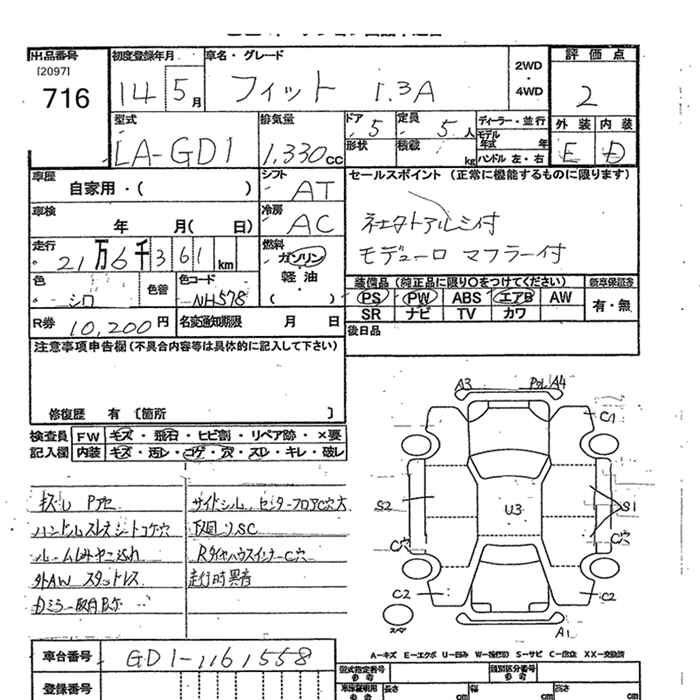 出品番号
[2097]
716
初度登録年月
14 5月
車名・グレード
フィット 1.3A
2WD
・
4WD
評価点
2
外装 内装
E D
型式
LA-GD1
排気量
1,330cc
ドア 5
形状
定員 5人
積載 kg
ディーラー・並行
モデル
年式 年
ハンドル 左・右
車歴
自家用・( )
シフト
AT
セールスポイント (正常に機能するものに限ります)
社外アルミ付
モデューロ マフラー付
車検
年 月( 日)
冷房
AC
走行
21万6千361km
燃料
ガソリン
軽油
( )
色
シロ
色替
色コード
NH578
装備品 (純正品に限り○をつけてください)
新車保証書
PS PW ABS エアB AW
SR ナビ TV カワ
有・無
R券 10,200円
名変通知期限 月 日
後日品
注意事項申告欄(不具合内容等は具体的に記入して下さい)
修復歴 有 [箇所 ]
検査員
記入欄
FW キズ・飛石・ヒビ割・リペア跡・×要
内装 キズ・汚レ・コゲ・穴・スレ・キレ・破レ
ハンドルスレ シートコゲ穴
外AW スタッドレス
サイドシル、センターフロアC穴大
下廻りSC
RタイヤハウスインナーC穴
走行時異音
A3
A4
C1
S2
U3
S1
C穴
C穴
C2
C2
A1
スペア
A-キズ E-エクボ U-凹み W-補修跡 S-サビ C-腐食 XX-交換済
車台番号
GD1-1161558
登録番号
型式指定番号
参考
類別区分番号
参考
長さ cm
幅 cm
高さ cm